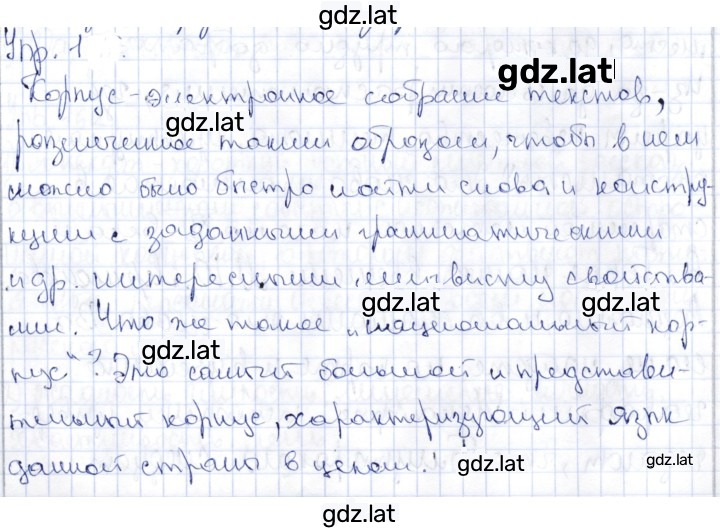 gdz.lat
Упр. 1
gdz.lat
Корпус - электронное собрание текстов,
gdz.lat
размеченное таким образом, чтобы в нем
можно было быстро найти слова и констру-
кции с заданными грамматическими
gdz.lat
и др. интересными лингвисту свойства-
gdz.lat gdz.lat
ми. Что же такое „национальный кор-
gdz.lat
пус"? Это самый большой и представи-
тельный корпус, характеризующий язык
данной страны в целом.
gdz.lat gdz.lat
gdz.lat